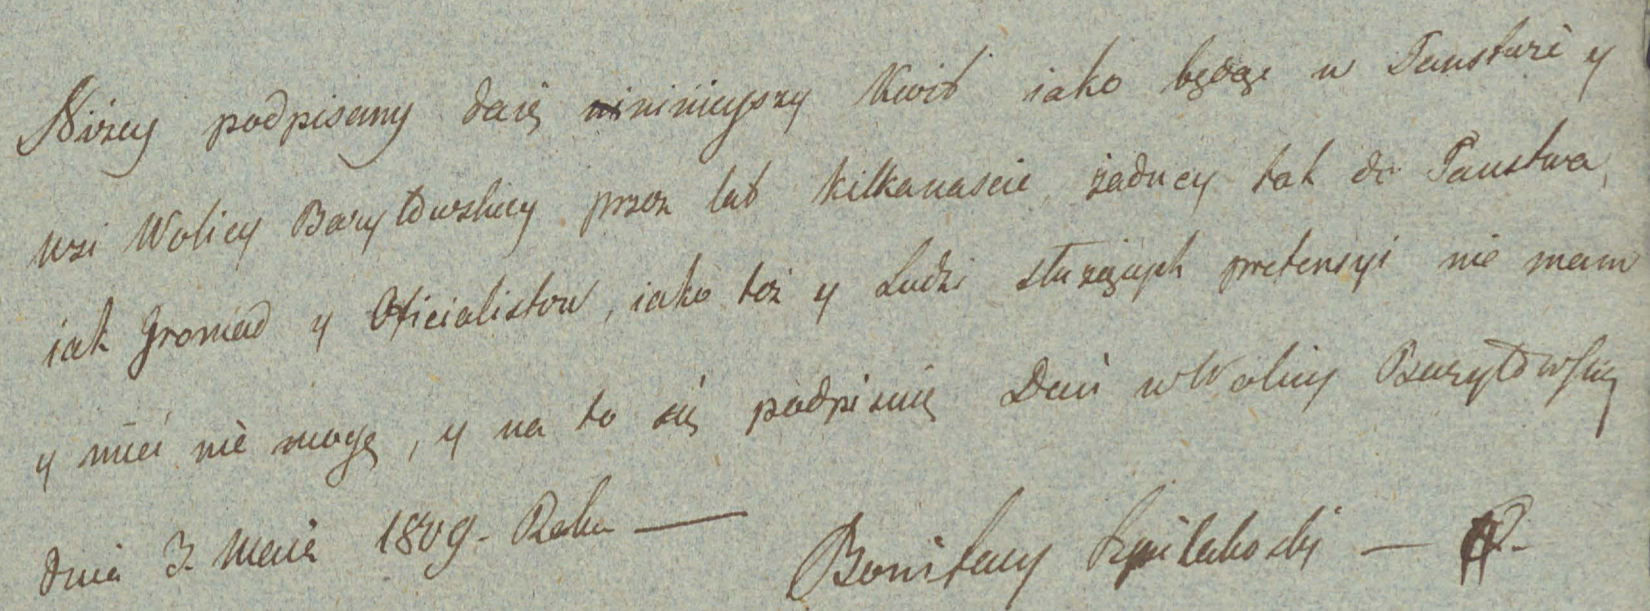 Niżey podpisany daię nininieyszy Kwit iako będąc w Panstwie y
wsi Wolicy Baryłowskiey przez lat kilkanascie, żadney tak do Panstwa,
iak Gromad y Oficialistow, iako też y Ludzi służących pretensyi nie mam
y mieć nie mogę, y na to się podpisuię Dań w Wolicy Baryłowskiey
dnia 3. Maia 1809. Roku —
Bonifacy